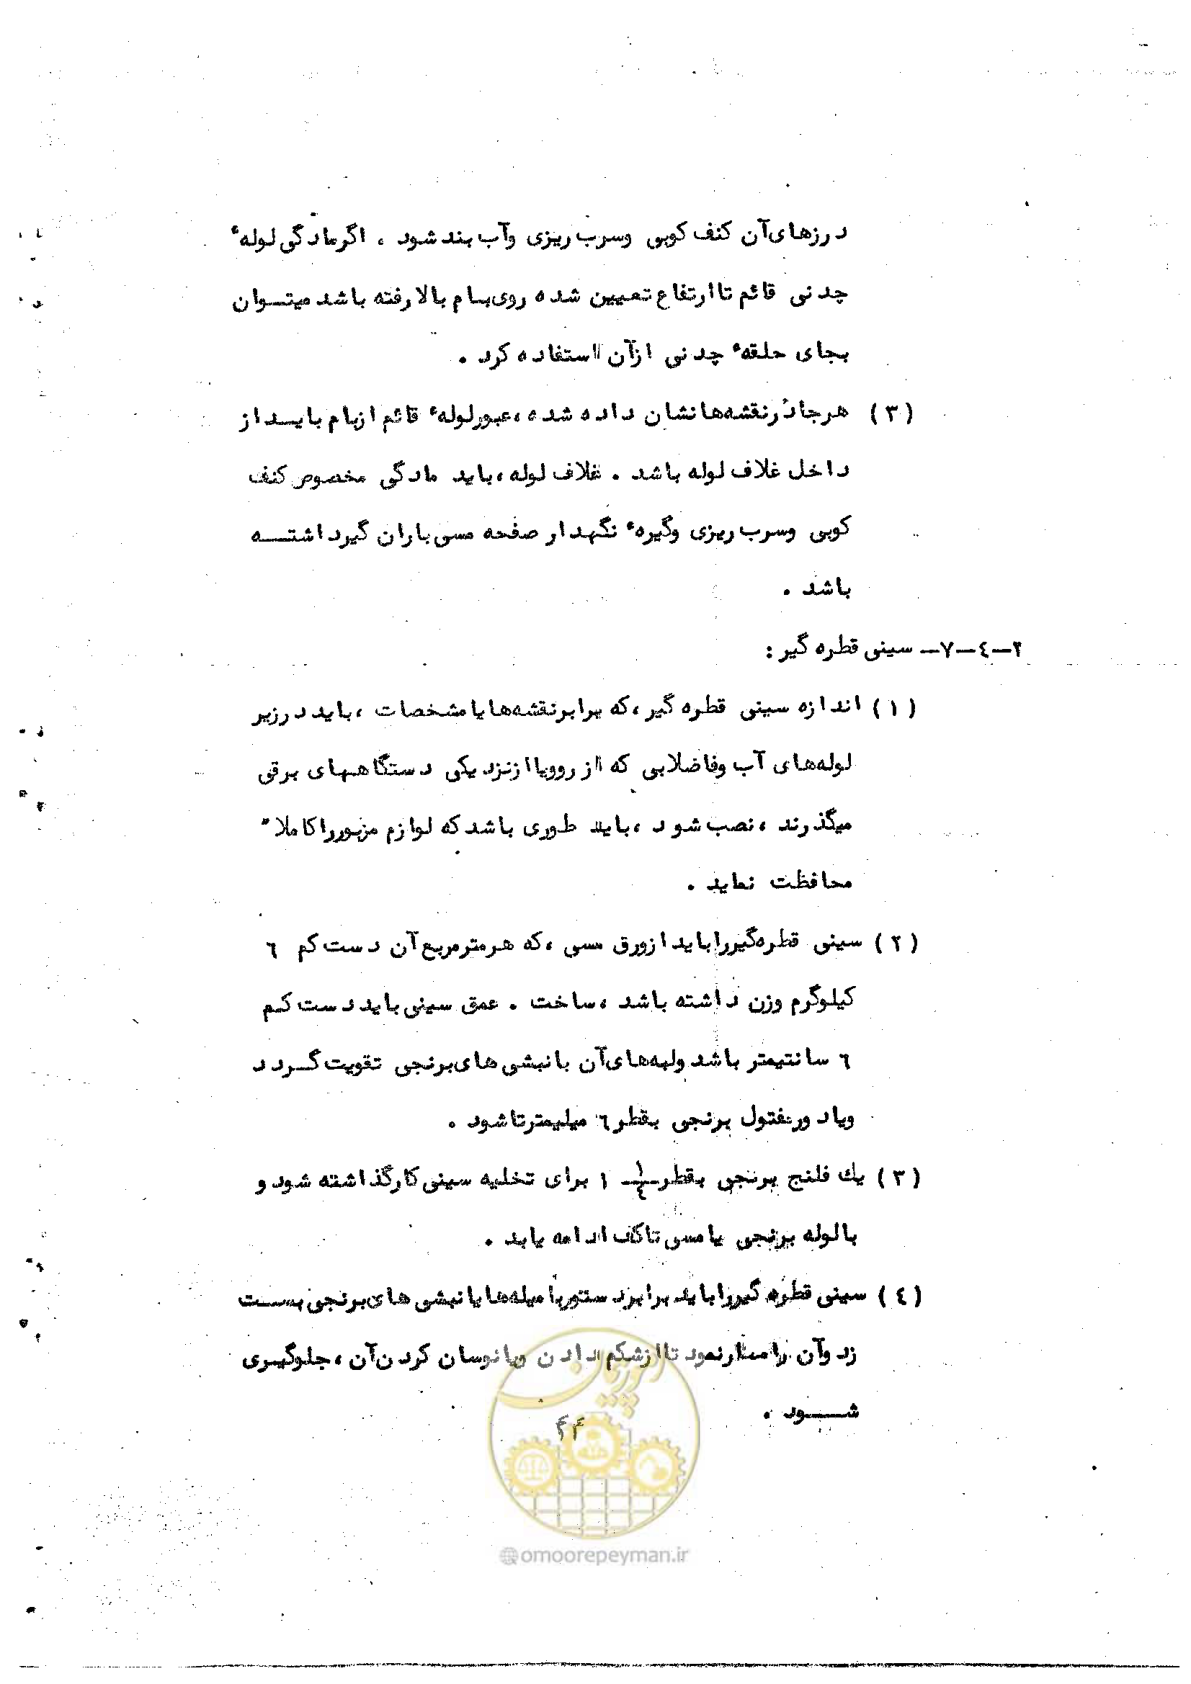 درزهای‌آن کنف کوبی وسرب ریزی وآب بند شود ، اگرمادگی لوله ٔ
چدنی قائم تاارتفاع تعیین شده روی‌بام بالارفته باشد میتوان
بجای حلقه ٔ چدنی ازآن استفاده کرد .
(٣) هرجادرنقشه‌هانشان داده شده ،عبورلوله ٔ قائم ازبام بایداز
داخل غلاف لوله باشد . غلاف لوله ،باید مادگی مخصوص کنف
کوبی وسرب ریزی وگیره ٔ نگهدار صفحه مسی‌باران گیرداشته
باشد .
٢–٤–٧– سینی قطره گیر :
(١) اندازه سینی قطره گیر ،که برابرنقشه‌هایامشخصات ،باید درزیر
لوله‌های آب وفاضلابی که از رویاازنزدیکی دستگاههای برقی
میگذرند ،نصب شود ،باید طوری باشدکه لوازم مزبورراکاملا"
محافظت نماید .
(٢) سینی قطره‌گیرراباید ازورق مسی ،که هرمترمربع‌آن دست کم ٦
کیلوگرم وزن داشته باشد ،ساخت . عمق سینی‌باید دست کم
٦ سانتیمتر باشد ولبه‌های‌آن بانبشی های‌برنجی تقویت گردد
ویاد ورمفتول برنجی بقطر ٦ میلیمترتاشود .
(٣) یك فلنج برنجی بقطر ١/٤ ١ برای تخلیه سینی‌کارگذاشته شود و
بالوله برنجی یامسی تاکف ادامه یابد .
(٤) سینی قطره گیرراباید برابردستوربا میله‌هایانبشی های‌برنجی بست
زد وآن رامهارنمود تاازشکم دادن ویانوسان کردن‌آن ،جلوگیری
شود .
٤٤
امور پیمان
@omoorepeyman.ir